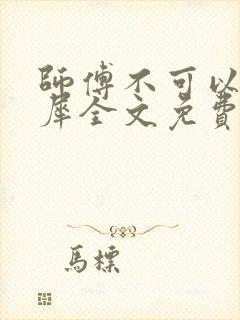 師傅不可以
犀全文免費
馬標